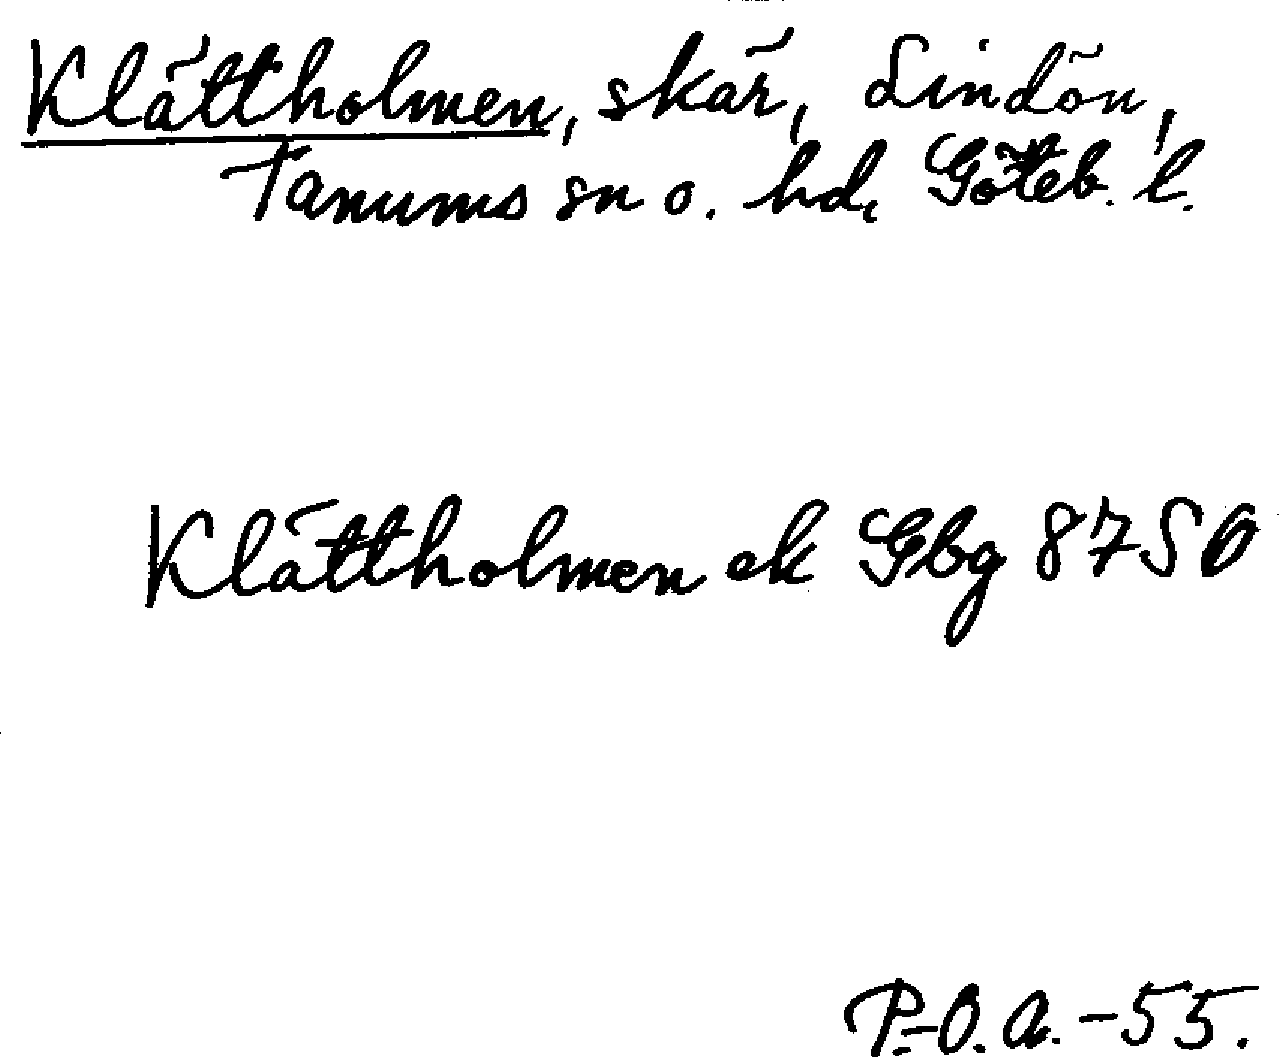 Klättholmen, skär, Lindön,
Tanums sn o. hd, Göteb. l.
Klättholmen ek Gbg 87 SO
P.-O. A. -55.